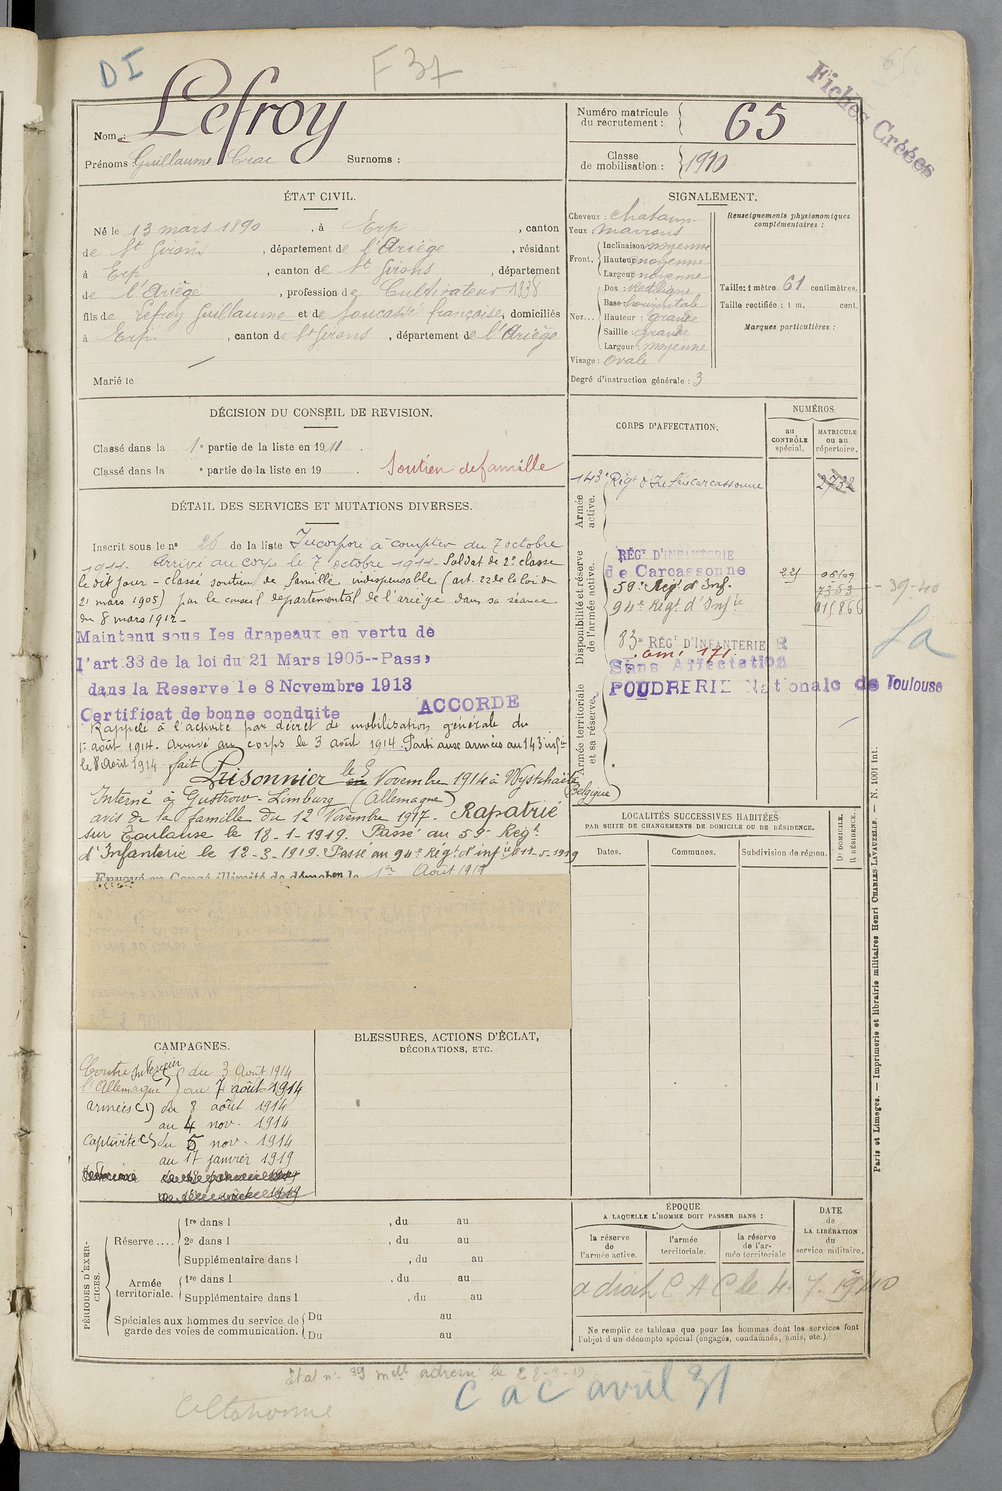 DI
F 37
65
Fiches Créées
Nom : Lefroy
Prénoms Guillaume Surnoms :
Numéro matricule du recrutement : 65
Classe de mobilisation : 1910
ÉTAT CIVIL.
Né le 13 mars 1890, à Erp, canton
de St Girons, département de l'Ariège, résidant
à Erp, canton de St Girons, département
de l'Ariège, profession de Cultivateur 1938
fils de Lefroy Guillaume et de Soucasse françoise, domiciliés
à Erp, canton de St Girons, département de l'Ariège
Marié le
SIGNALEMENT.
Cheveux : chatains
Yeux : marrons
Front, Inclinaison moyenne
Hauteur moyenne
Largeur moyenne
Nez... Dos : rectiligne
Base : horizontale
Hauteur : grande
Saillie : grande
Largeur : moyenne
Visage : ovale
Degré d'instruction générale : 3
Renseignements physionomiques complémentaires :
Taille : 1 mètre 61 centimètres.
Taille rectifiée : 1 m. cent.
Marques particulières :
DÉCISION DU CONSEIL DE REVISION.
Classé dans la 1e partie de la liste en 1911.
Classé dans la e partie de la liste en 19
Soutien de famille
DÉTAIL DES SERVICES ET MUTATIONS DIVERSES.
Inscrit sous le no 26 de la liste Incorporé à compter du 7 octobre
1911. Arrivé au corps le 7 octobre 1911. Soldat de 2e classe
le dit jour - classé soutien de famille indispensable (art. 22 de la loi du
21 mars 1905) par le conseil départemental de l'ariège dans sa séance
du 8 mars 1912-
Maintenu sous les drapeaux en vertu de
l'art.33 de la loi du 21 Mars 1905--Passé
dans la Reserve le 8 Novembre 1913
Certificat de bonne conduite ACCORDE
Rappelé à l'activité par décret de mobilisation générale du
1er août 1914. Arrivé au corps le 3 août 1914. Parti aux armées au 143 infie
le 8 août 1914 fait Prisonnier le 5 Novembre 1914 à Wystchaete
(Belgique)
Interné à Gustrow-Limburg (Allemagne)
avis de la famille du 12 Novembre 1917. Rapatrié
sur Toulouse le 18-1-1919. Passé au 59e Régt
d'Infanterie le 12-3-1919. Passé au 94e Régt d'infie le 11-5-1919
Envoyé en Congé illimité de démob en le 1er Août 1919
CORPS D'AFFECTATION.
NUMÉROS
au CONTRÔLE spécial.
MATRICULE ou au répertoire.
Armée active.
143e Régt d'Infie Carcassonne 2732
Disponibilité et réserve de l'armée active.
RÉGT D'INFANTERIE
de Carcassonne
59e Régt d'Inf. 7353
94e Régt d'Infie 015866
39-40
La
83e RÉGT D'INFANTERIE
Armée territoriale et sa réserve.
Sans Affectation
POUDRERIE Nationale de Toulouse
LOCALITÉS SUCCESSIVES HABITÉES
PAR SUITE DE CHANGEMENTS DE DOMICILE OU DE RÉSIDENCE.
Dates.
Communes.
Subdivision de région.
D. DOMICILE.
R. RÉSIDENCE.
CAMPAGNES.
Contre l'Allemagne Intérieur du 3 Août 1914
au 7 août 1914
armées (1) du 8 août 1914
au 4 nov. 1914
Captivité du 5 nov. 1914
au 17 janvier 1919
BLESSURES, ACTIONS D'ÉCLAT,
DÉCORATIONS, ETC.
PÉRIODES D'EXERCICES.
Réserve.... 1re dans l , du au
2e dans l , du au
Supplémentaire dans l , du au
Armée territoriale. 1re dans l , du au
Supplémentaire dans l , du au
Spéciales aux hommes du service de garde des voies de communication. Du au
Du au
ÉPOQUE
A LAQUELLE L'HOMME DOIT PASSER DANS :
la réserve de l'armée active.
l'armée territoriale.
la réserve de l'armée territoriale
DATE de LA LIBÉRATION du service militaire.
a droit C A C le 4. 7. 1940
Ne remplir ce tableau que pour les hommes dont les services font
l'objet d'un décompte spécial (engagés, condamnés, omis, etc.).
Paris et Limoges. — Imprimerie et librairie militaires Henri CHARLES-LAVAUZELLE. — N. 1001 Int.
C a C avril 31